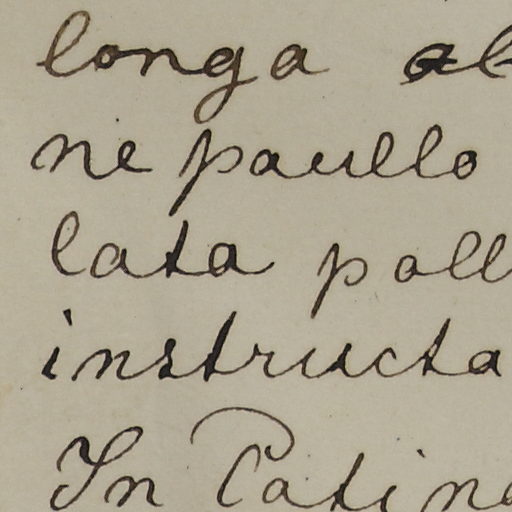 longa al
ne paullo
lata poll
instructa
In Catine